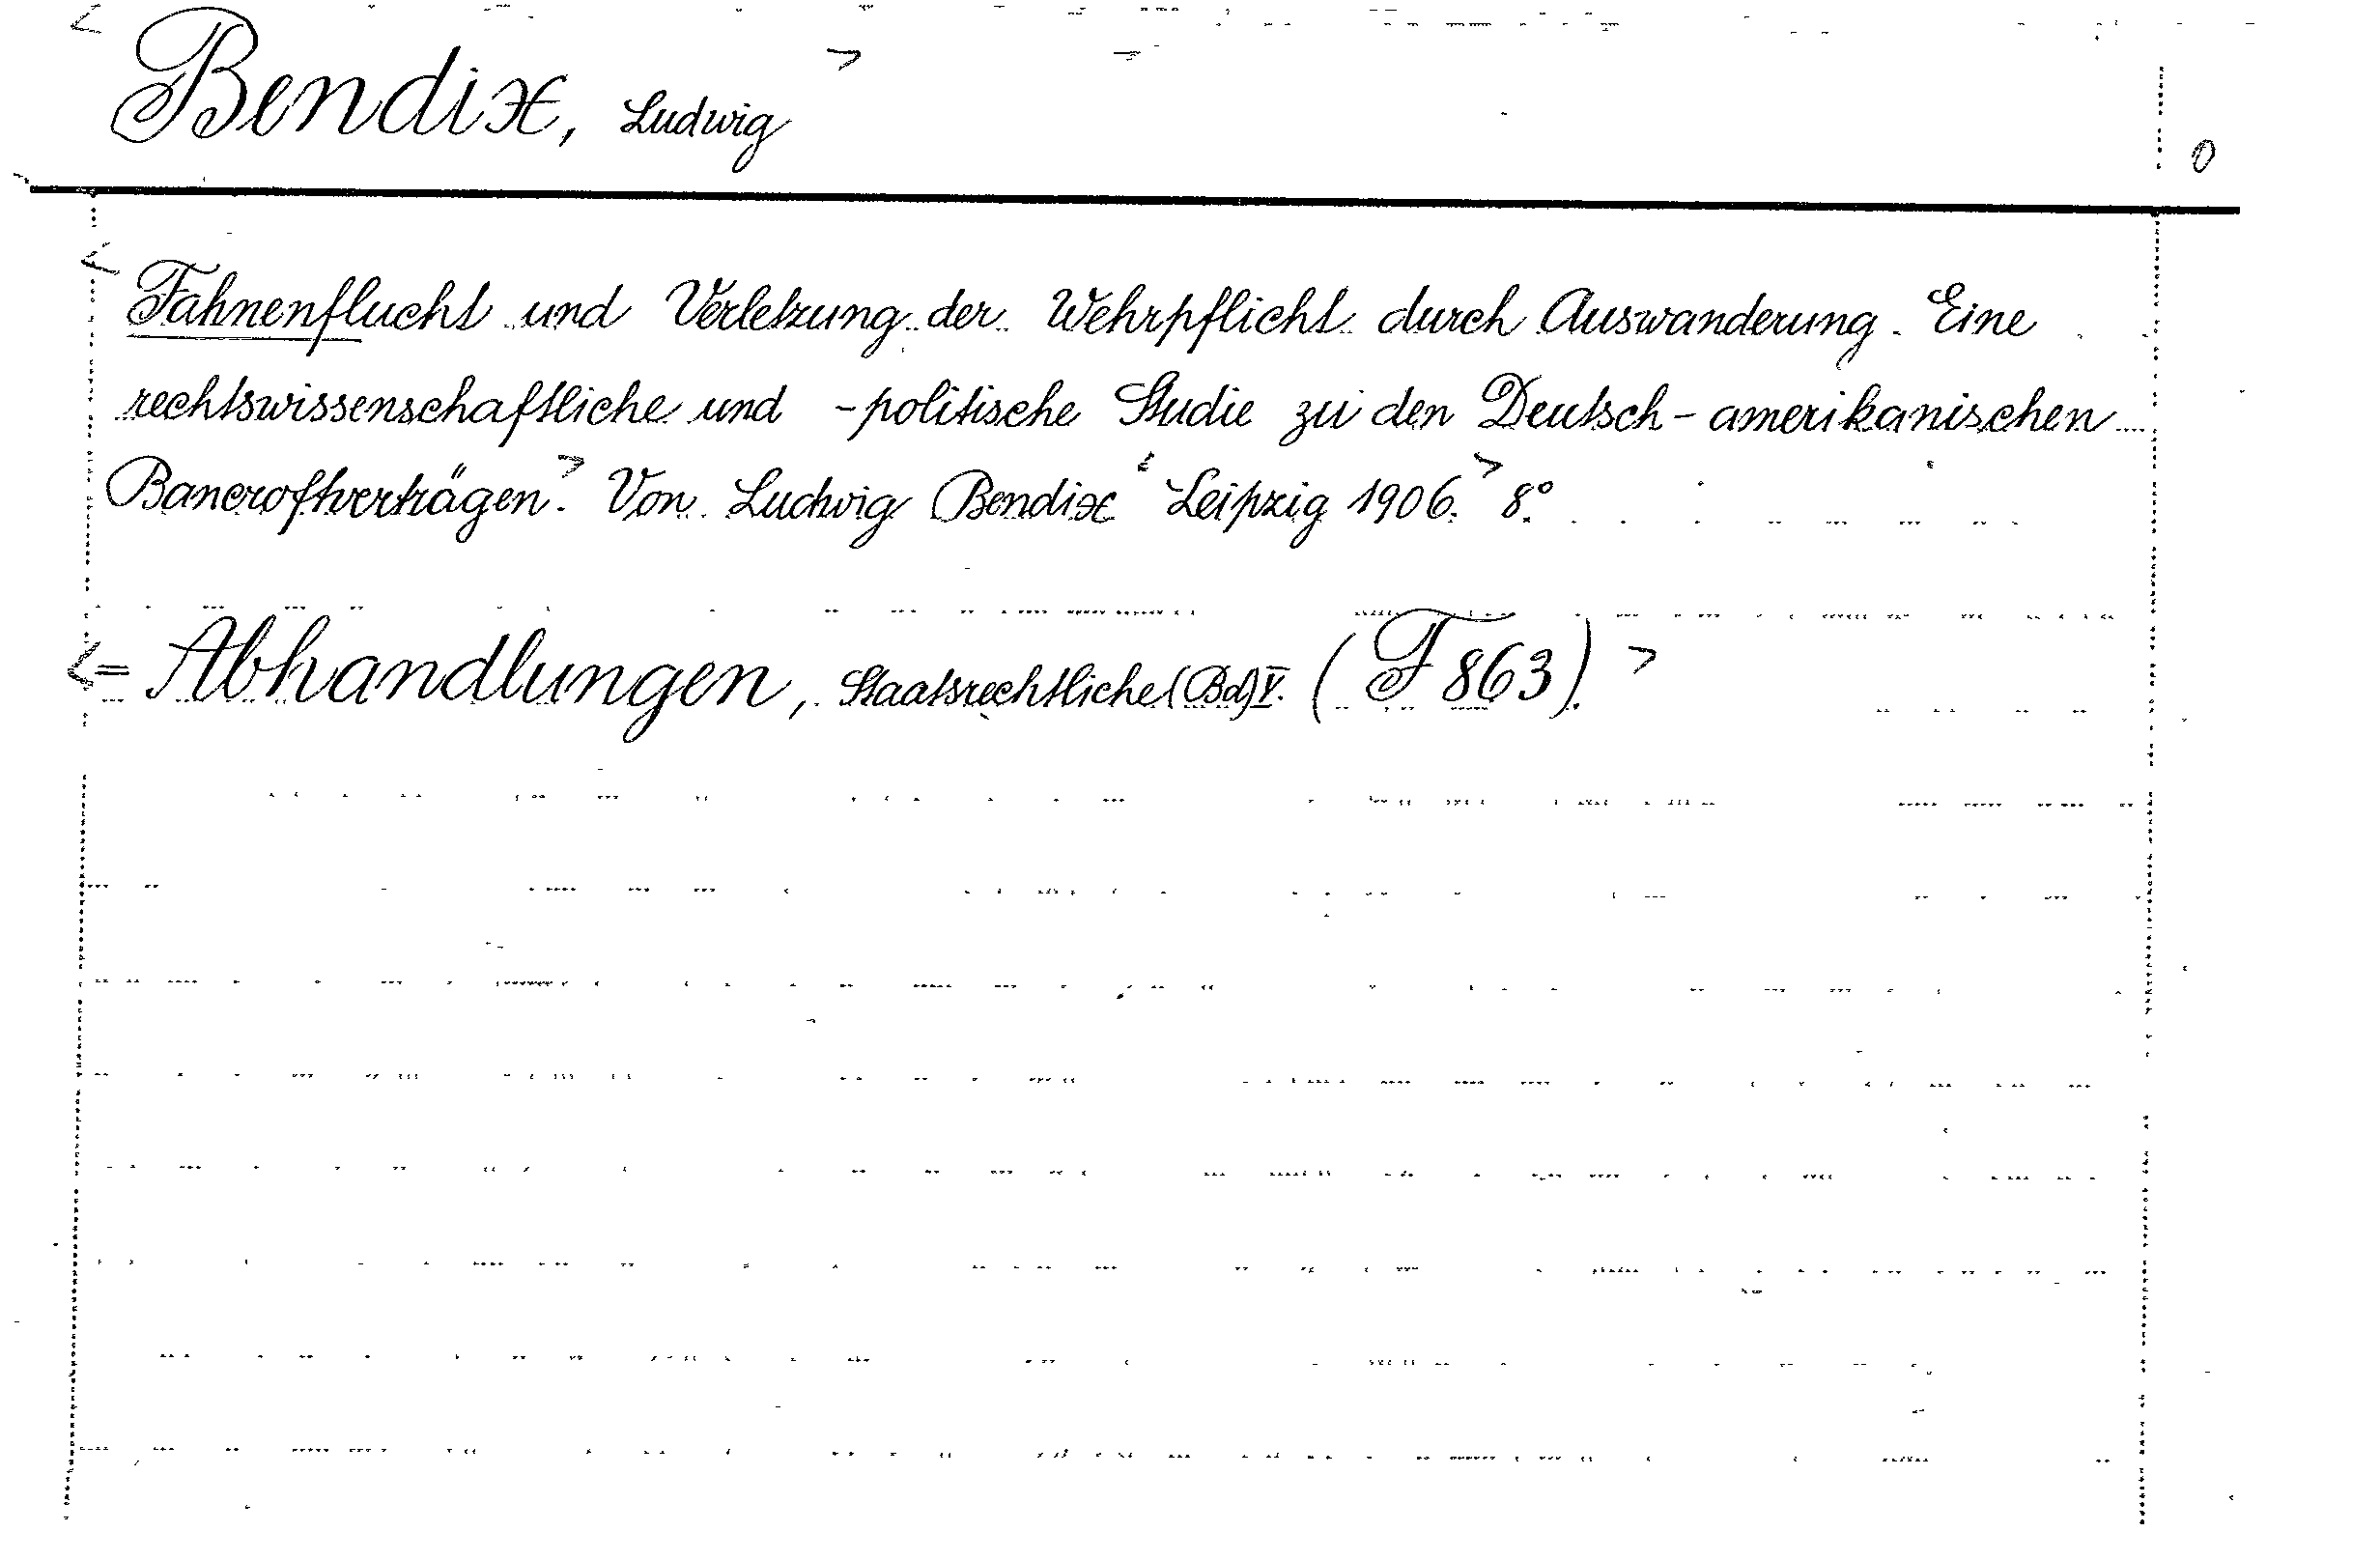 < Bendix, Ludwig >
0
< Fahnenflucht und Verletzung der Wehrpflicht durch Auswanderung. Eine
rechtswissenschaftliche und -politische Studie zu den Deutsch-amerikanischen
Bancroftverträgen. > Von Ludwig Bendix < Leipzig 1906. > 8°.
< = Abhandlungen, Staatsrechtliche (Bd) V. (F 863). >